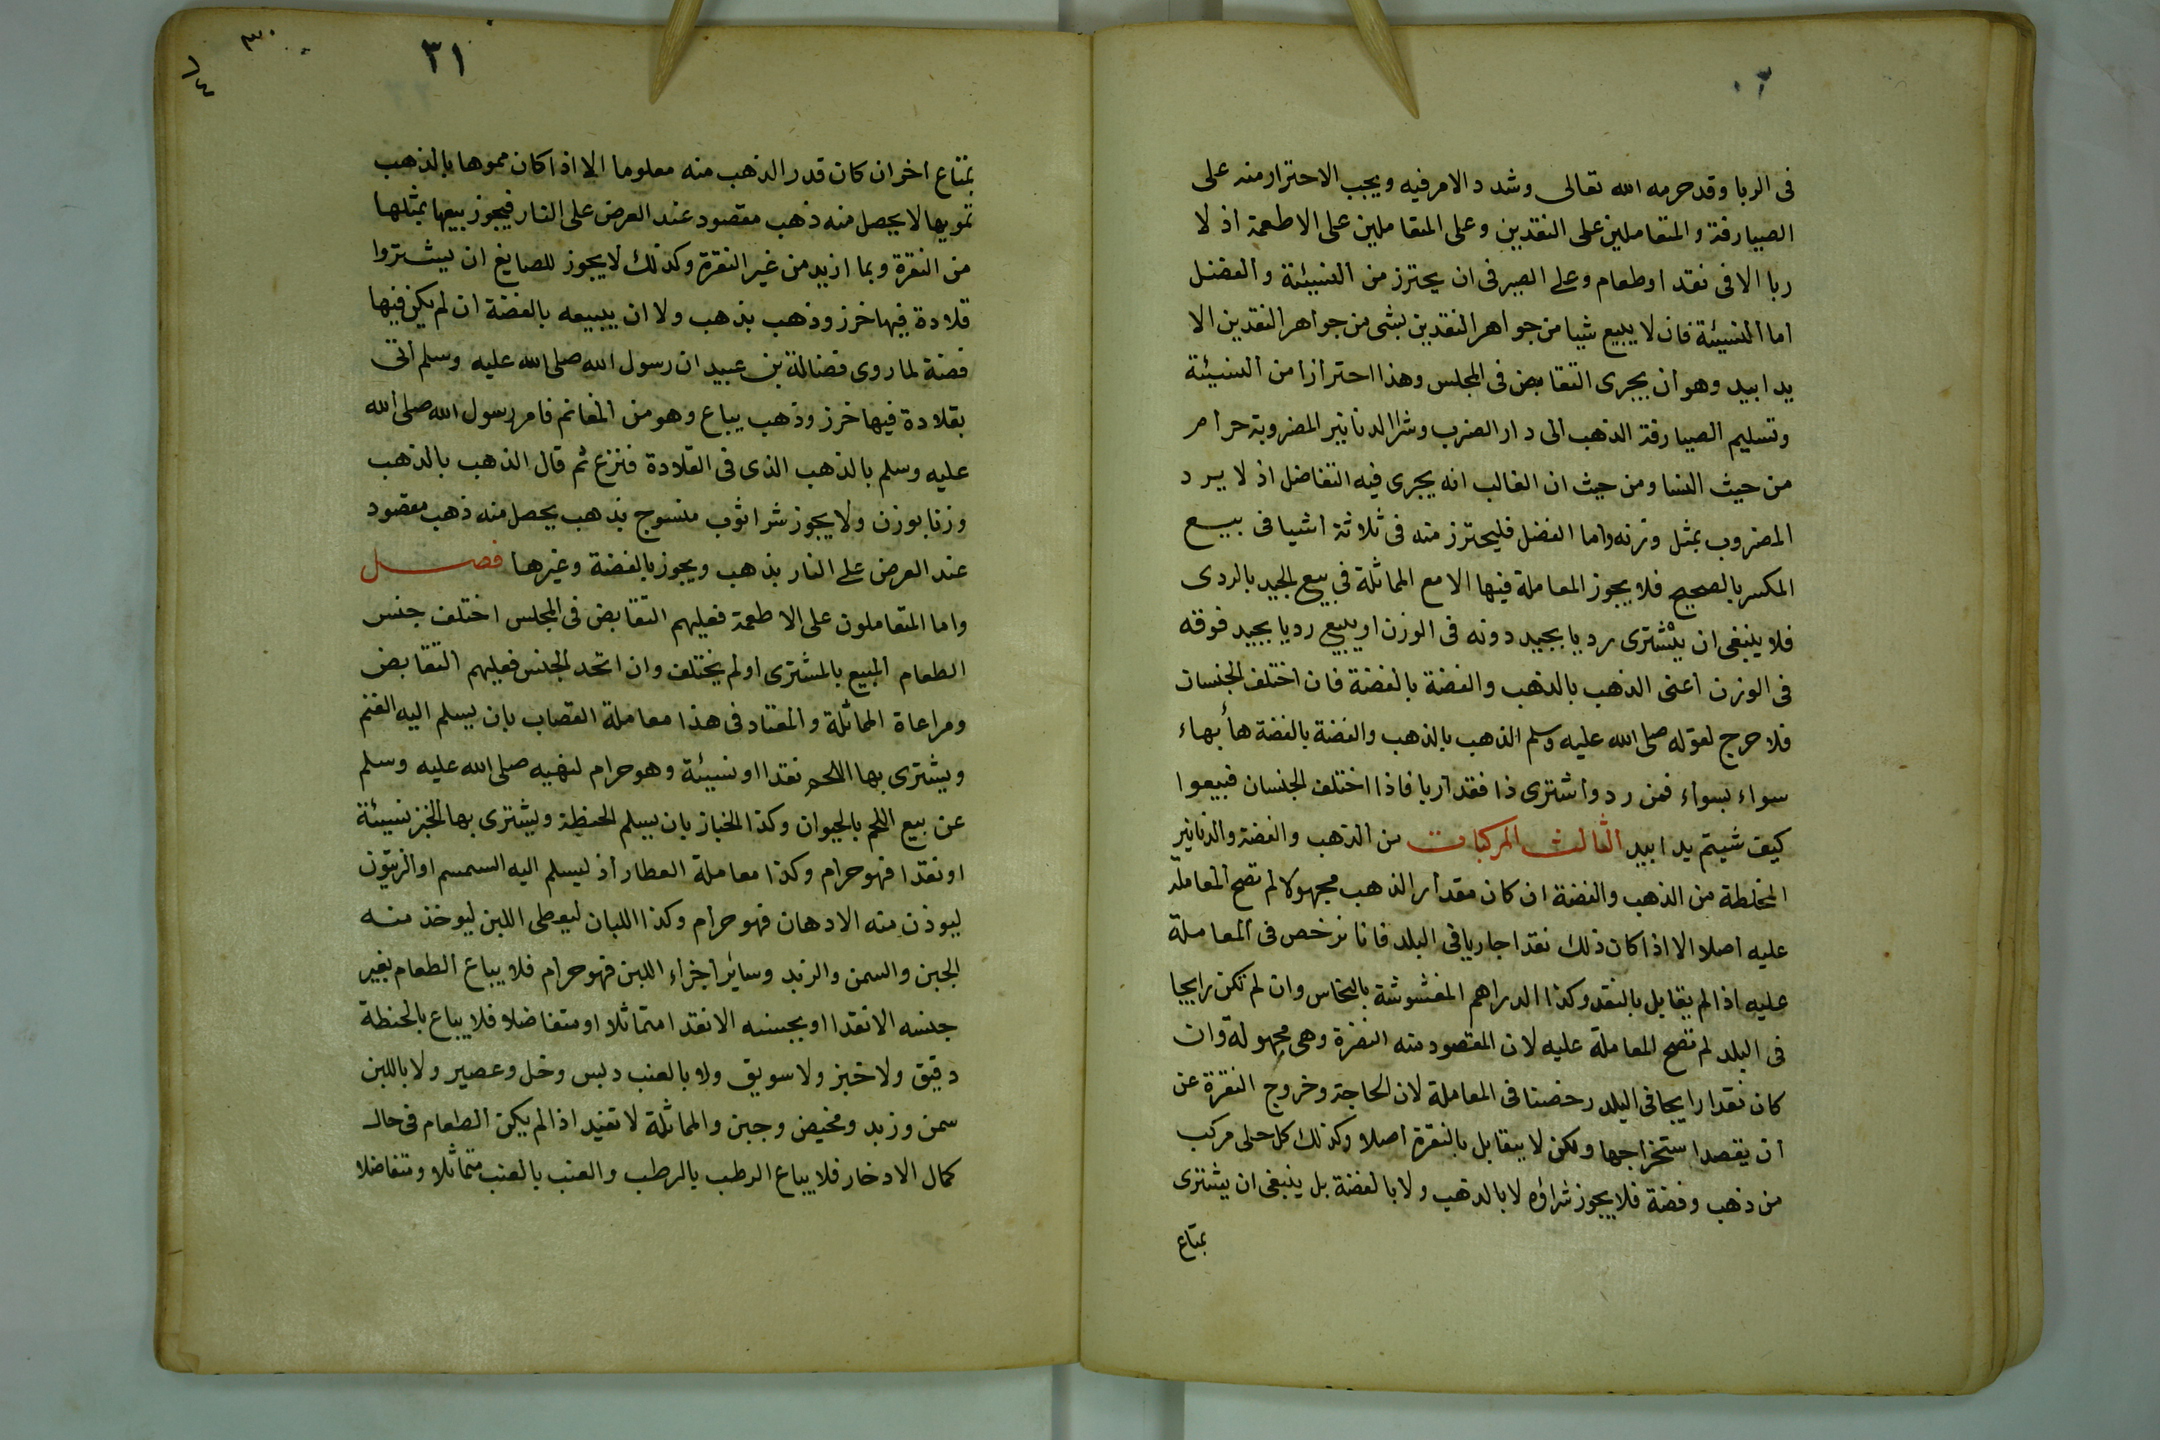 فى الربا وقد حرمه الله تعالى وشدد الامر فيه ويجب الاحتراز منه على
الصيارفة والمتعاملين على النقدين وعلى المتعاملين على الاطعمة اذ لا
ربا الا فى نقد او طعام وعلى الصيرفى ان يحترز من النسيئة والفضل
اما النسيئة فان لا يبيع شيا من جواهر النقدين بشى من جواهر النقدين الا
يدا بيد وهو ان يجرى التقابض فى المجلس وهذا احترازا من النسيئة
وتسليم الصيارفة الذهب الى دار الضرب وشرا الدنانير المضروبة حرام
من حيث النسا ومن حيث ان الغالب انه يجرى فيه التفاضل اذ لا يرد
المضروب بمثل وزنه واما الفضل فليحترز منه فى ثلاثة اشيا فى بيع
المكسر بالصحيح فلا يجوز المعاملة فيها الا مع المماثلة فى بيع الجيد بالردى
فلا ينبغى ان يشترى رديا بجيد دونه فى الوزن او يبيع رديا بجيد فوقه
فى الوزن اعنى الذهب بالذهب والفضة بالفضة فان اختلف الجنسان
فلا حرج لقوله صلى الله عليه وسلم الذهب بالذهب والفضة بالفضة هاء بهاء
سواء بسواء فمن رد واشترى ذا فقد اربا فاذا اختلف الجنسان فبيعوا
كيف شيتم يدا بيد الثالث المركبات من الذهب والفضة والدنانير
المخلطة من الذهب والفضة ان كان مقدار الذهب مجهولا لم تصح المعاملة
عليه اصلا الا اذا كان ذلك نقدا جاريا فى البلد فانا نرخص فى المعاملة
عليه اذا لم يقابل بالنقد وكذا الدراهم المغشوشة بالنحاس وان لم تكن رايجا
فى البلد لم تصح المعاملة عليه لان المقصود منه النقرة وهى مجهولة وان
كان نقدا رايجا فى البلد رخصنا فى المعاملة لان الحاجة وخروج النقرة عن
ان يقصد استخراجها ولكن لا يقابل بالنقرة اصلا وكذلك كل حلى مركب
من ذهب وفضة فلا يجوز شراؤه لا بالذهب ولا بالفضة بل ينبغى ان يشترى
بمتاع
٣١
٣٠
بمتاع اخر ان كان قدر الذهب منه معلوما الا اذا كان مموها بالذهب
تمويها لا يحصل منه ذهب مقصود عند العرض على النار فيجوز بيعها بمثلها
من النقرة وبما ازيد من غير النقرة وكذلك لا يجوز للصايغ ان يشتروا
قلادة فيها خرز وذهب بذهب ولا ان يبيعه بالفضة ان لم يكن فيها
فضة لما روى فضالة بن عبيد ان رسول الله صلى الله عليه وسلم اتى
بقلادة فيها خرز وذهب يباع وهو من المغانم فامر رسول الله صلى الله
عليه وسلم بالذهب الذى فى القلادة فنزع ثم قال الذهب بالذهب
وزنا بوزن ولا يجوز شرا ثوب منسوج بذهب يحصل منه ذهب مقصود
عند العرض على النار بذهب ويجوز بالفضة وغيرها فصل
واما المتعاملون على الاطعمة فعليهم التقابض فى المجلس اختلف جنس
الطعام المبيع بالمشترى او لم يختلف وان اتحد الجنس فعليهم التقابض
ومراعاة المماثلة والمعتاد فى هذا معاملة القصاب بان يسلم اليه الغنم
ويشترى بها اللحم نقدا او نسيئة وهو حرام لنهيه صلى الله عليه وسلم
عن بيع اللحم بالحيوان وكذا الخباز بان يسلم الحنطة ويشترى بها الخبز نسيئة
او نقدا فهو حرام وكذا معاملة العطار اذ ليسلم اليه السمسم او الزيتون
ليوذن منه الادهان فهو حرام وكذا اللبان ليعطى اللبن ليوخذ منه
الجبن والسمن والزبد وساير اجزاء اللبن فهو حرام فلا يباع الطعام بغير
جنسه الا نقدا او بجنسه الا نقدا متماثلا او متفاضلا فلا يباع بالحنطة
دقيق ولا خبز ولا سويق ولا بالعنب دبس وخل وعصير ولا باللبن
سمن وزبد ومخيض وجبن والمماثلة لا تفيد اذا لم يكن الطعام فى حال
كمال الادخار فلا يباع الرطب بالرطب والعنب بالعنب متماثلا ومتفاضلا